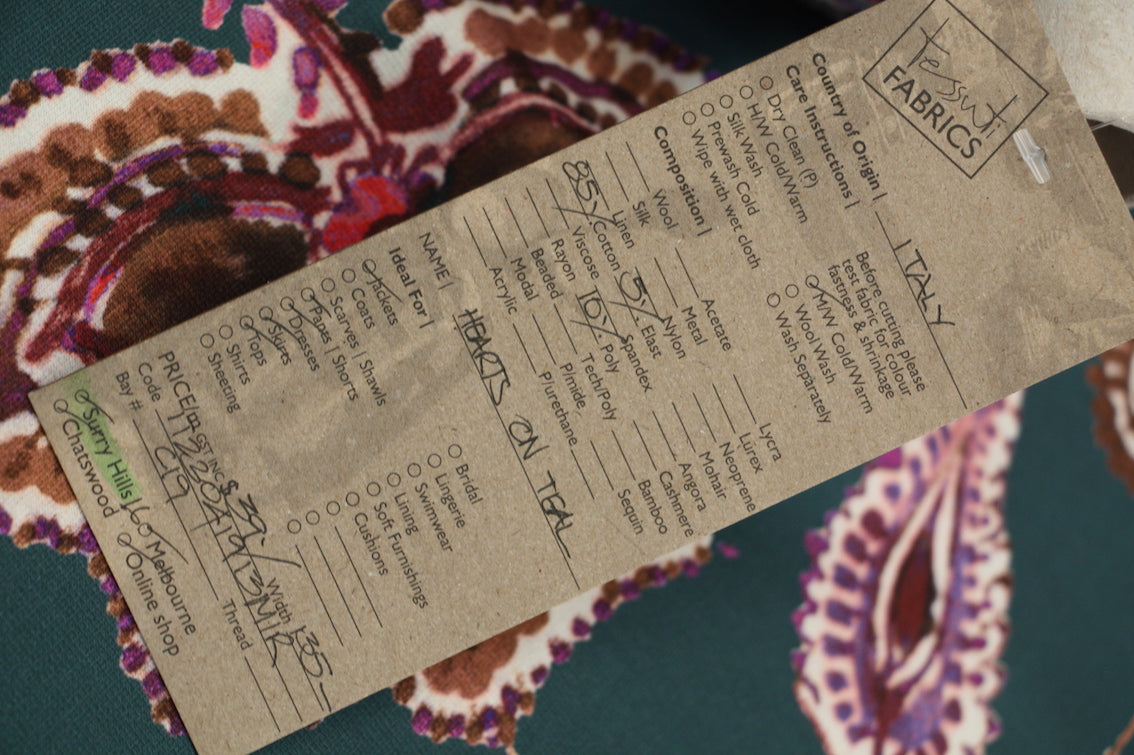 tessuti
FABRICS
Country of Origin | ITALY
Care Instructions |
Dry Clean (P)
H/W Cold/Warm
Silk Wash
Prewash Cold
Wipe with wet cloth
Before cutting please
test fabric for colour
fastness & shrinkage
M/W Cold/Warm
Wool Wash
Wash Separately
Composition |
Wool
Silk
Linen
85% Cotton
Viscose
Rayon
Beaded
Modal
Acrylic
Acetate
Metal
Nylon
5% Elast
Spandex
10% Poly
Tech/Poly
P/mide
P/urethane
Lycra
Lurex
Neoprene
Mohair
Angora
Cashmere
Bamboo
Sequin
NAME | HEARTS ON TEAL
Ideal For |
Jackets
Coats
Scarves | Shawls
Pants | Shorts
Dresses
Skirts
Tops
Shirts
Sheeting
Bridal
Lingerie
Swimwear
Lining
Soft Furnishings
Cushions
PRICE/m GST INC $ 39.- Width 135-
Code
Bay # C19 Thread
Surry Hills 160 Melbourne
Chatswood Online shop